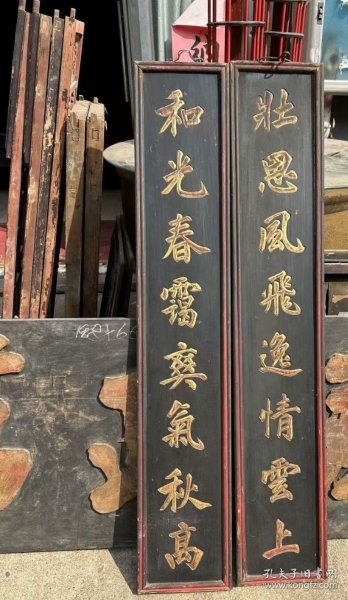 壯思風飛逸情雲上
和光春靄爽氣秋高
孔夫子旧书网
www.kongfz.com